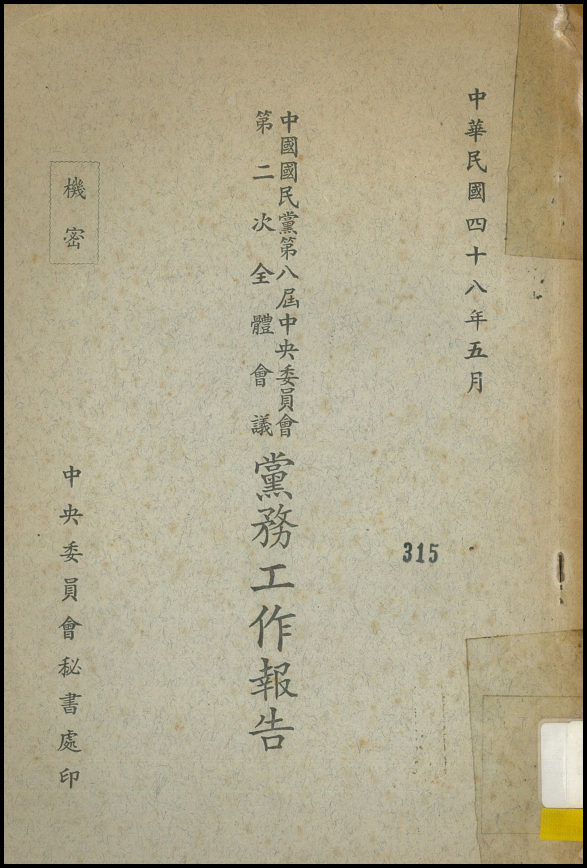 中華民國四十八年五月
315
中國國民黨第八屆中央委員會
第二次全體會議
黨務工作報告
機密
中央委員會秘書處印